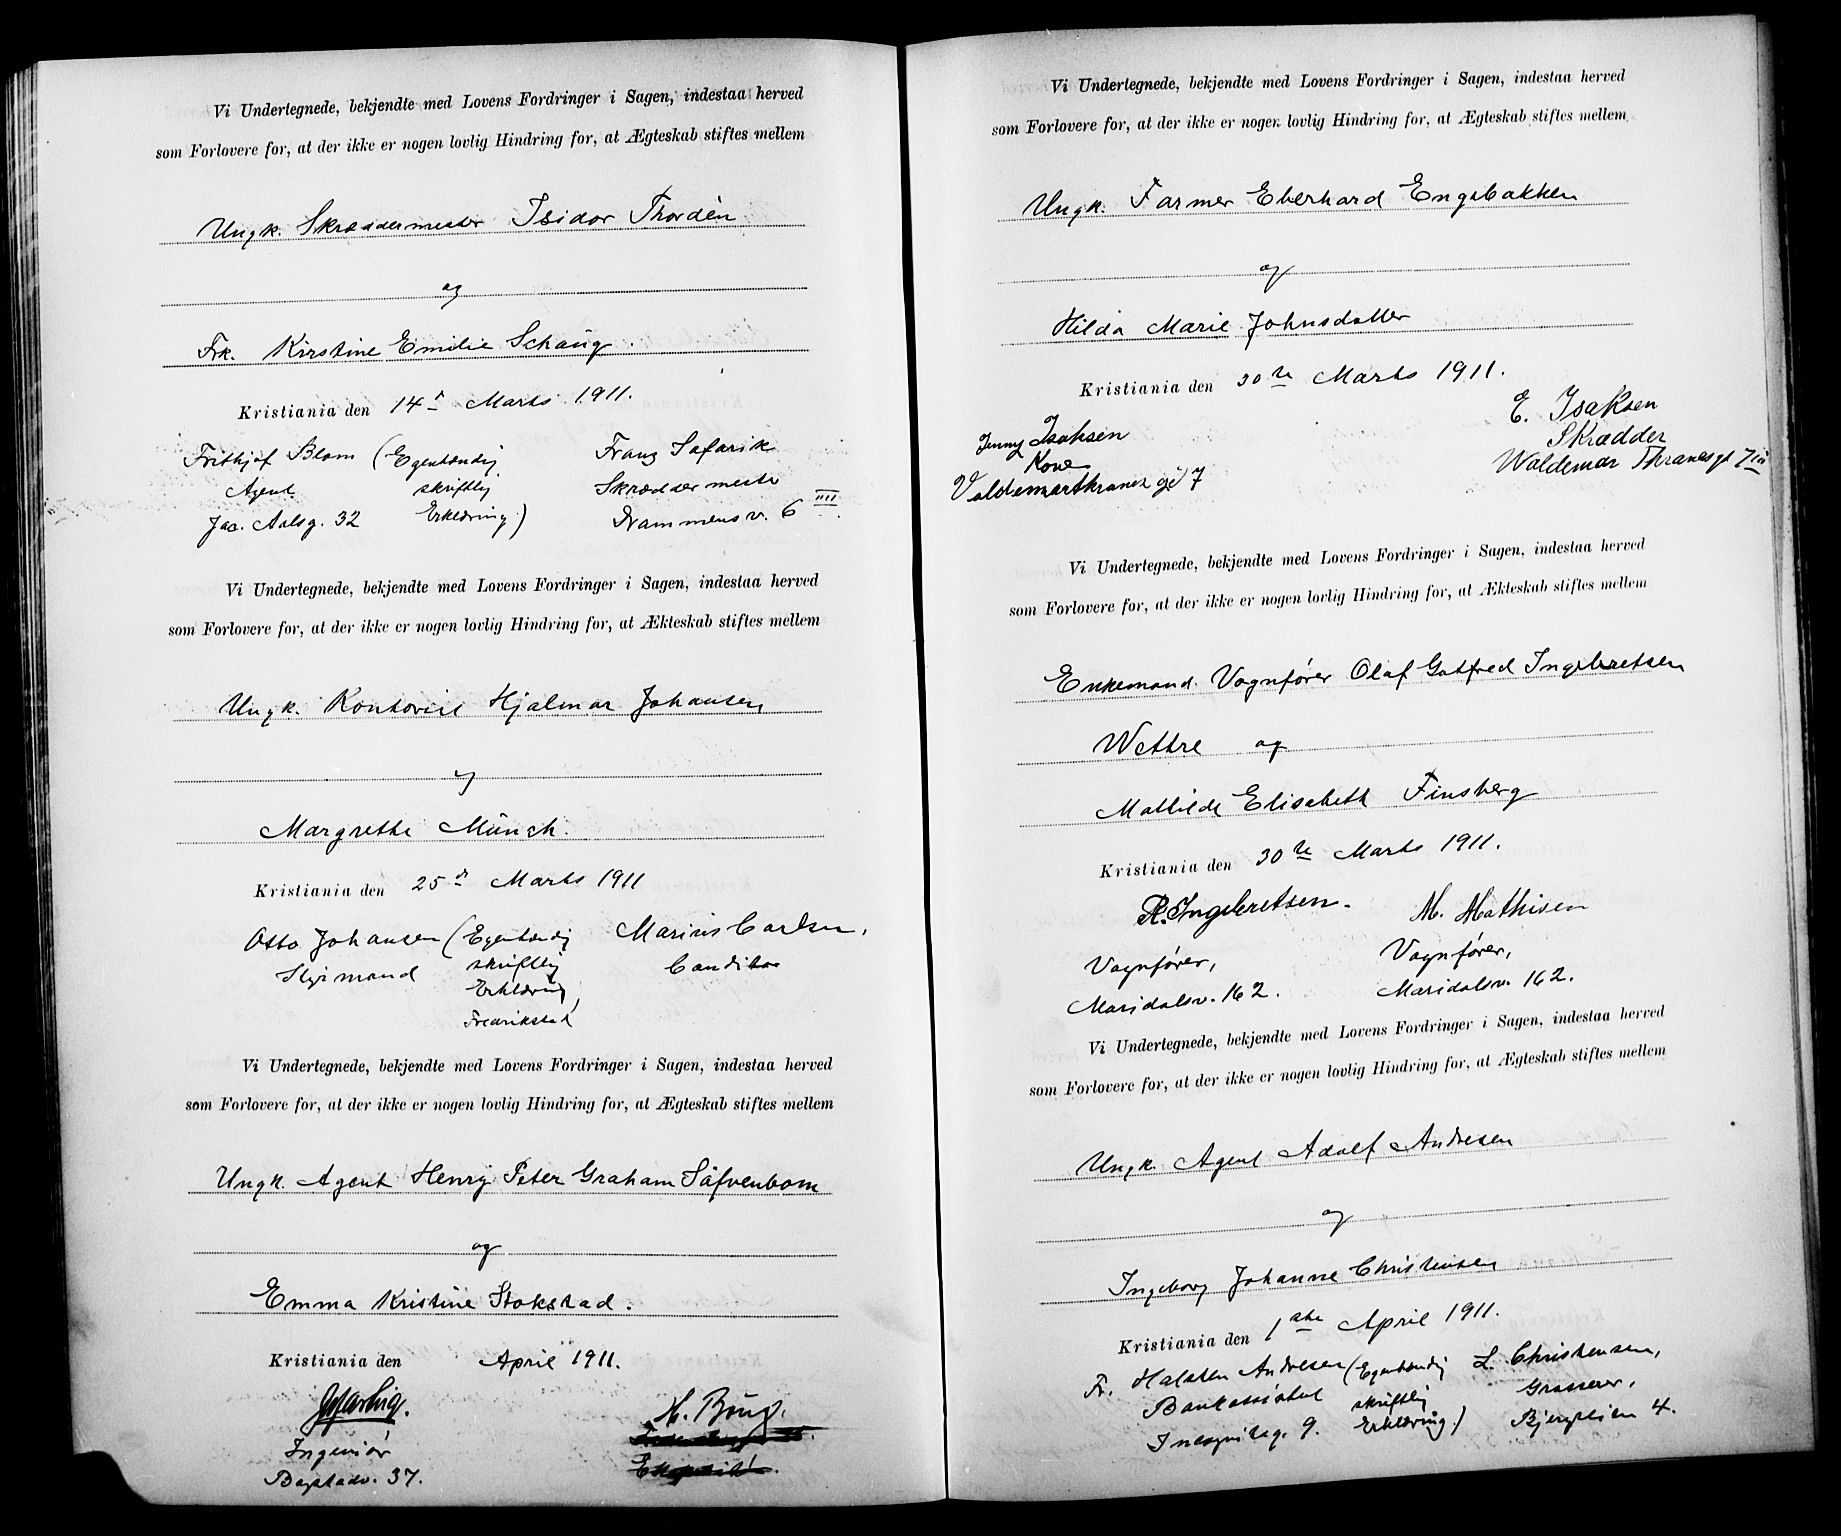 Vi Undertegnede, bekjendte med Lovens Fordringer i Sagen, indestaa herved
som Forlovere for, at der ikke er nogen lovlig Hindring for, at Ægteskab stiftes mellem
Ungk. Skræddermester Isidor Thordén
og
Frk. Kirstine Emilie Schaug.
Kristiania den 14de Marts 1911.
Frithjof Blom (Egenhændig Franz Safarik
Agent skriftlig Skræddermester
Jac. Aalsg. 32 Erklæring) Drammensv. 6 IIII
Vi Undertegnede, bekjendte med Lovens Fordringer i Sagen, indestaa herved
som Forlovere for, at der ikke er nogen lovlig Hindring for, at Ækteskab stiftes mellem
Ungk. Kontorist Hjalmar Johansen
og
Margrethe Münch.
Kristiania den 25de Marts 1911
Otto Johansen (Egenhændig Marius Carlsen,
Styrmand skriftlig Conditor
Erklæring,
Fredrikstad
Vi Undertegnede, bekjendte med Lovens Fordringer i Sagen, indestaa herved
som Forlovere for, at der ikke er nogen lovlig Hindring for, at Ægteskab stiftes mellem
Ungk. Agent Henry Peter Graham Säfvenbom
og
Emma Kristine Stokstad.
Kristiania den April 1911.
Ingeniør
Bogstadv. 37.
Vi Undertegnede, bekjendte med Lovens Fordringer i Sagen, indestaa herved
som Forlovere for, at der ikke er nogen lovlig Hindring for, at Ægteskab stiftes mellem
Ungk. Farmer Eberhard Engebakken
og
Hilda Marie Johnsdatter
Kristiania den 30te Marts 1911.
Jenny Isaksen E. Isaksen
Kone Skrædder
Valdemarthranes gd 7 Waldemar Thranesgt 7 III
Vi Undertegnede, bekjendte med Lovens Fordringer i Sagen, indestaa herved
som Forlovere for, at der ikke er nogen lovlig Hindring for, at Ækteskab stiftes mellem
Enkemand Vognfører Olaf Gotfred Ingebretsen
Wettre og
Mathilde Elisabeth Finsberg
Kristiania den 30te Marts 1911.
R. Ingebretsen. M. Mathisen
Vognfører, Vognfører,
Maridalsv. 162. Maridalsv. 162.
Vi Undertegnede, bekjendte med Lovens Fordringer i Sagen, indestaa herved
som Forlovere for, at der ikke er nogen lovlig Hindring for, at Ægteskab stiftes mellem
Ungk. Agent Adolf Andresen
og
Ingeborg Johanne Christensen
Kristiania den 1ste April 1911.
Fr. Halsten Andresen (Egenhændig L. Christensen,
Bankassistent skriftlig Grosserer,
9. Erklæring) Bjergslien 4.